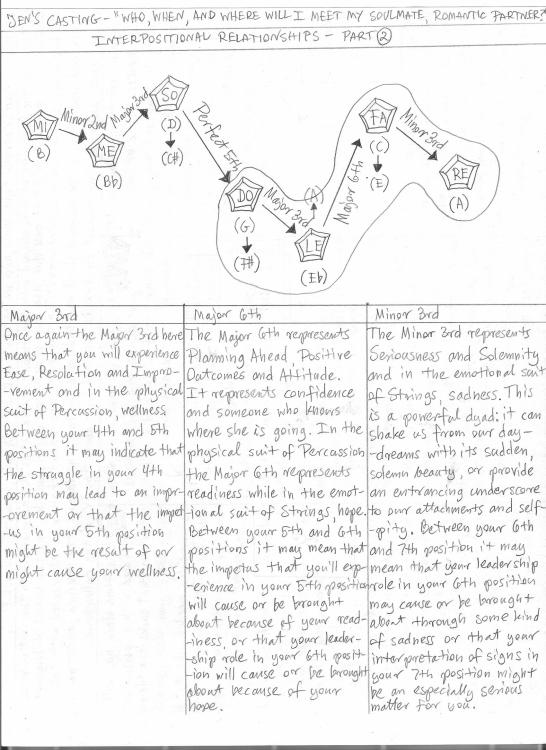 JEN'S CASTING - "WHO, WHEN, AND WHERE WILL I MEET MY SOULMATE, ROMANTIC PARTNER?"
INTERPOSITIONAL RELATIONSHIPS - PART 2
MI
(B)
Minor 2nd
ME
(Bb)
Major 3rd
SO
(D)
(C#)
Perfect 5th
DO
(G)
(F#)
Major 3rd
(A)
LE
(Eb)
Major 6th
FA
(C)
(E)
Minor 3rd
RE
(A)
Major 3rd
Once again the Major 3rd here
means that you will experience
Ease, Resolution and Impro-
-vement and in the physical
suit of Percussion, wellness.
Between your 4th and 5th
positions it may indicate that
the struggle in your 4th
position may lead to an impr-
-ovement or that the impet-
-us in your 5th position
might be the result of or
might cause your wellness.
Major 6th
The Major 6th represents
Planning Ahead, Positive
Outcomes and Attitude.
It represents confidence
and someone who knows
where she is going. In the
physical suit of Percussion
the Major 6th represents
readiness while in the emot-
-ional suit of Strings, hope.
Between your 5th and 6th
positions it may mean that
the impetus that you'll exp-
-erience in your 5th position
will cause or be brought
about because of your read-
-iness, or that your leader-
-ship role in your 6th posit-
-ion will cause or be brought
about because of your
hope.
Minor 3rd
The Minor 3rd represents
Seriousness and Solemnity
and in the emotional suit
of Strings, sadness. This
is a powerful dyad: it can
shake us from our day-
-dreams with its sudden,
solemn beauty, or provide
an entrancing underscore
to our attachments and self-
-pity. Between your 6th
and 7th position it may
mean that your leadership
role in your 6th position
may cause or be brought
about through some kind
of sadness or that your
interpretation of signs in
your 7th position might
be an especially serious
matter for you.